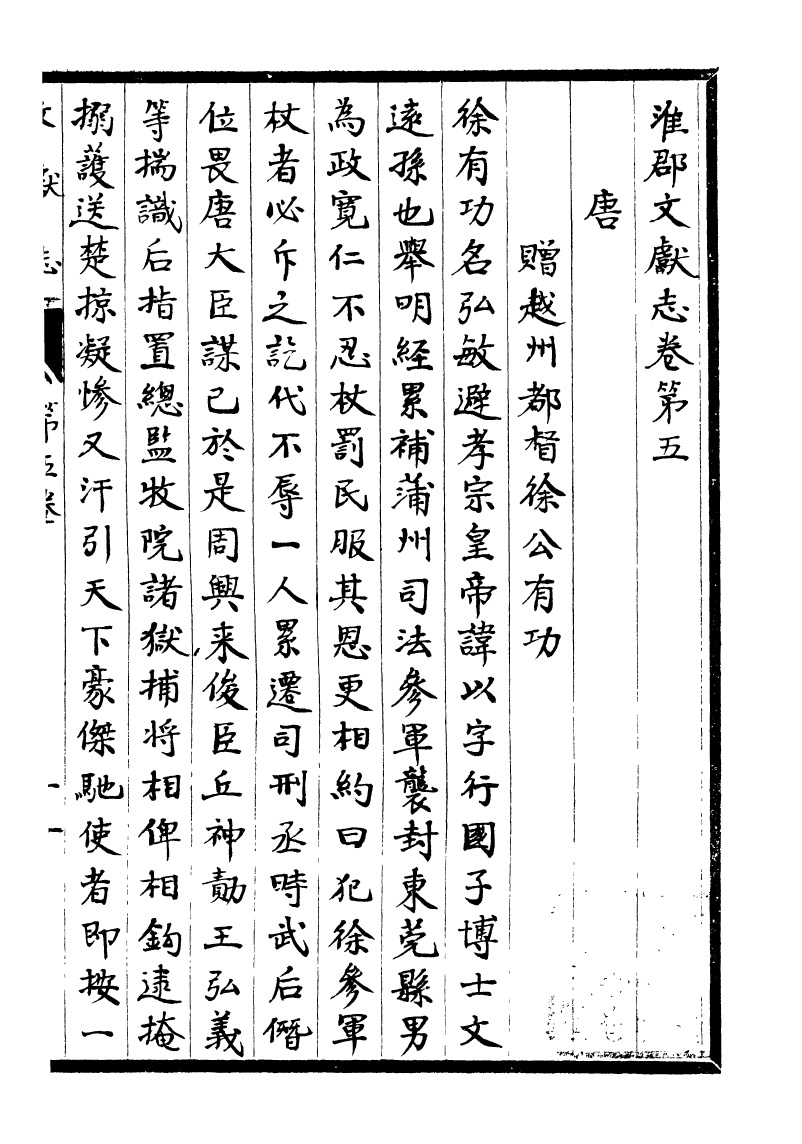 淮郡文獻志卷第五
唐
贈越州都督徐公有功
徐有功名弘敏避孝宗皇帝諱以字行國子博士文
遠孫也舉明經累補蒲州司法參軍襲封東莞縣男
為政寬仁不忍杖罰民服其恩更相約曰犯徐參軍
杖者必斥之訖代不辱一人累遷司刑丞時武后僭
位畏唐大臣謀己於是周興来俊臣丘神勣王弘義
等揣識后指置總監牧院諸獄捕將相俾相鉤逮掩
搦護送楚掠凝慘又汙引天下豪傑馳使者即按一
文獻志 第五卷 一